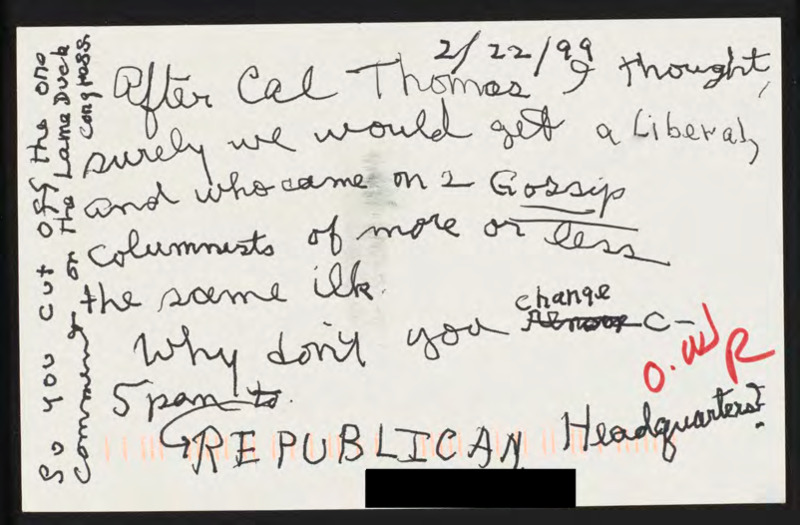 2/22/99
After Cal Thomas I thought,
surely we would get a Liberal,
and who came on 2 Gossip
columnists of more or less
the same ilk.
Why don't you change C-
Span to
REPUBLICAN Headquarters?
So you cut off the one
comment on the Lame Duck
Congress.